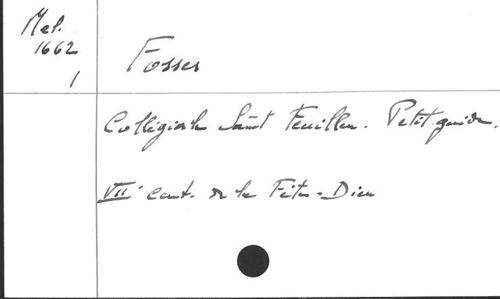 Mel.
1662
1
Fosses
Collégiale Saint Feuillen. Petit guide.
VIIe cent. de la Fête-Dieu